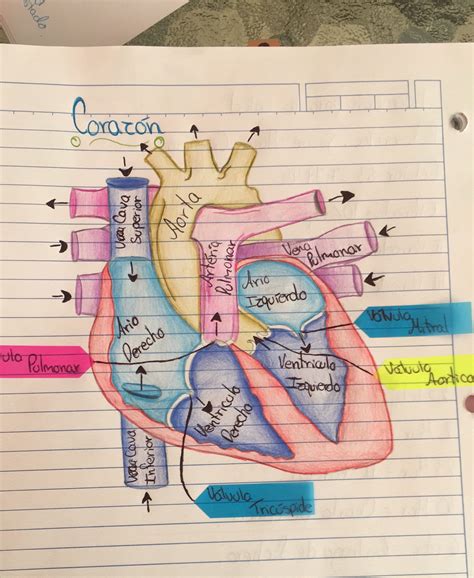 Corazón
Vena Cava
Superior
Aorta
Arteria
Pulmonar
Vena
Pulmonar
Ario
Izquierdo
Válvula
Mitral
Ario
Derecho
Pulmonar
Ventriculo
Izquierdo
Válvula
Aortica
Ventriculo
Derecho
Vena Cava
Inferior
Válvula
Tricúspide